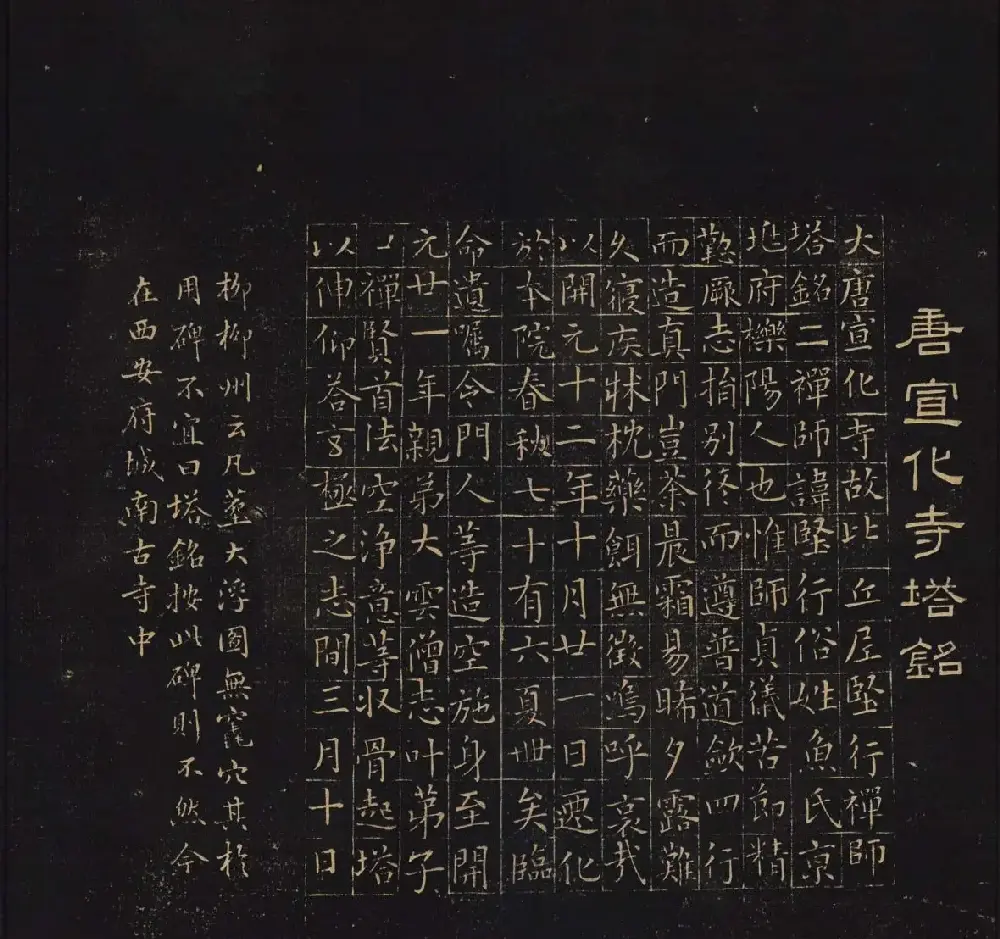 唐宣化寺塔銘
大唐宣化寺故比丘尼堅行禪師
塔銘二禪師諱堅行俗姓魚氏京
兆府櫟陽人也惟師貞儀苦節精
懃厥志捐別修而遵普道歛四行
而造真門豈荼晨霜易晞夕露難
久寢疾牀枕藥餌無徵嗚呼哀哉
以開元十二年十月廿一日遷化
於本院春秋七十有六夏卌矣臨
命遺囑令門人等造空施身至開
元廿一年親弟大雲僧志叶弟子
禪賢首法空淨意等収骨起塔
以伸仰荅玄極之志間三月十日
柳柳州云凡葬大浮圖無竁穴其於
用碑不宜曰塔銘按此碑則不然今
在西安府城南古寺中